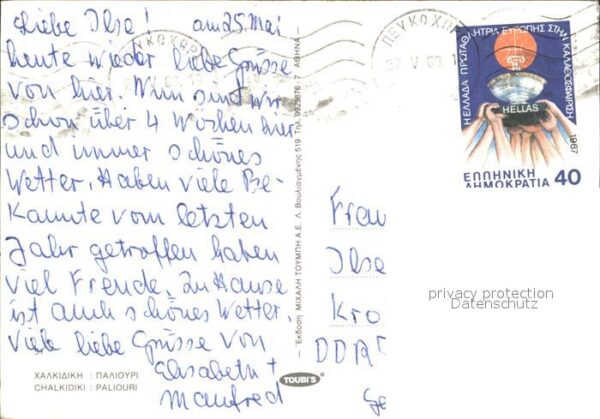 Liebe Ilse! am 25. Mai
heute wieder liebe Grüsse
von hier. Nun sind wir
schon über 4 Wochen hier
und immer schönes
Wetter. Haben viele Be-
kannte vom letzten
Jahr getroffen haben
viel Freude. Zu Hause
ist auch schönes Wetter.
Viele liebe Grüsse von
Elisabeth +
Manfred
ΧΑΛΚΙΔΙΚΗ : ΠΑΛΙΟΥΡΙ
CHALKIDIKI : PALIOURI
Έκδοση ΜΙΧΑΛΗ ΤΟΥΜΠΗ Α.Ε. Λ. Βουλιαγμένης 519 Τηλ. 9923876 - 7 ΑΘΗΝΑ
TOUBI'S
Η ΕΛΛΑΔΑ ΠΡΩΤΑΘΛΗΤΡΙΑ ΕΥΡΩΠΗΣ ΣΤΗΝ ΚΑΛΑΘΟΣΦΑΙΡΙΣΗ
HELLAS
1987
ΕΛΛΗΝΙΚΗ
ΔΗΜΟΚΡΑΤΙΑ 40
Frau
Ilse
Kro
DDR
privacy protection
Datenschutz